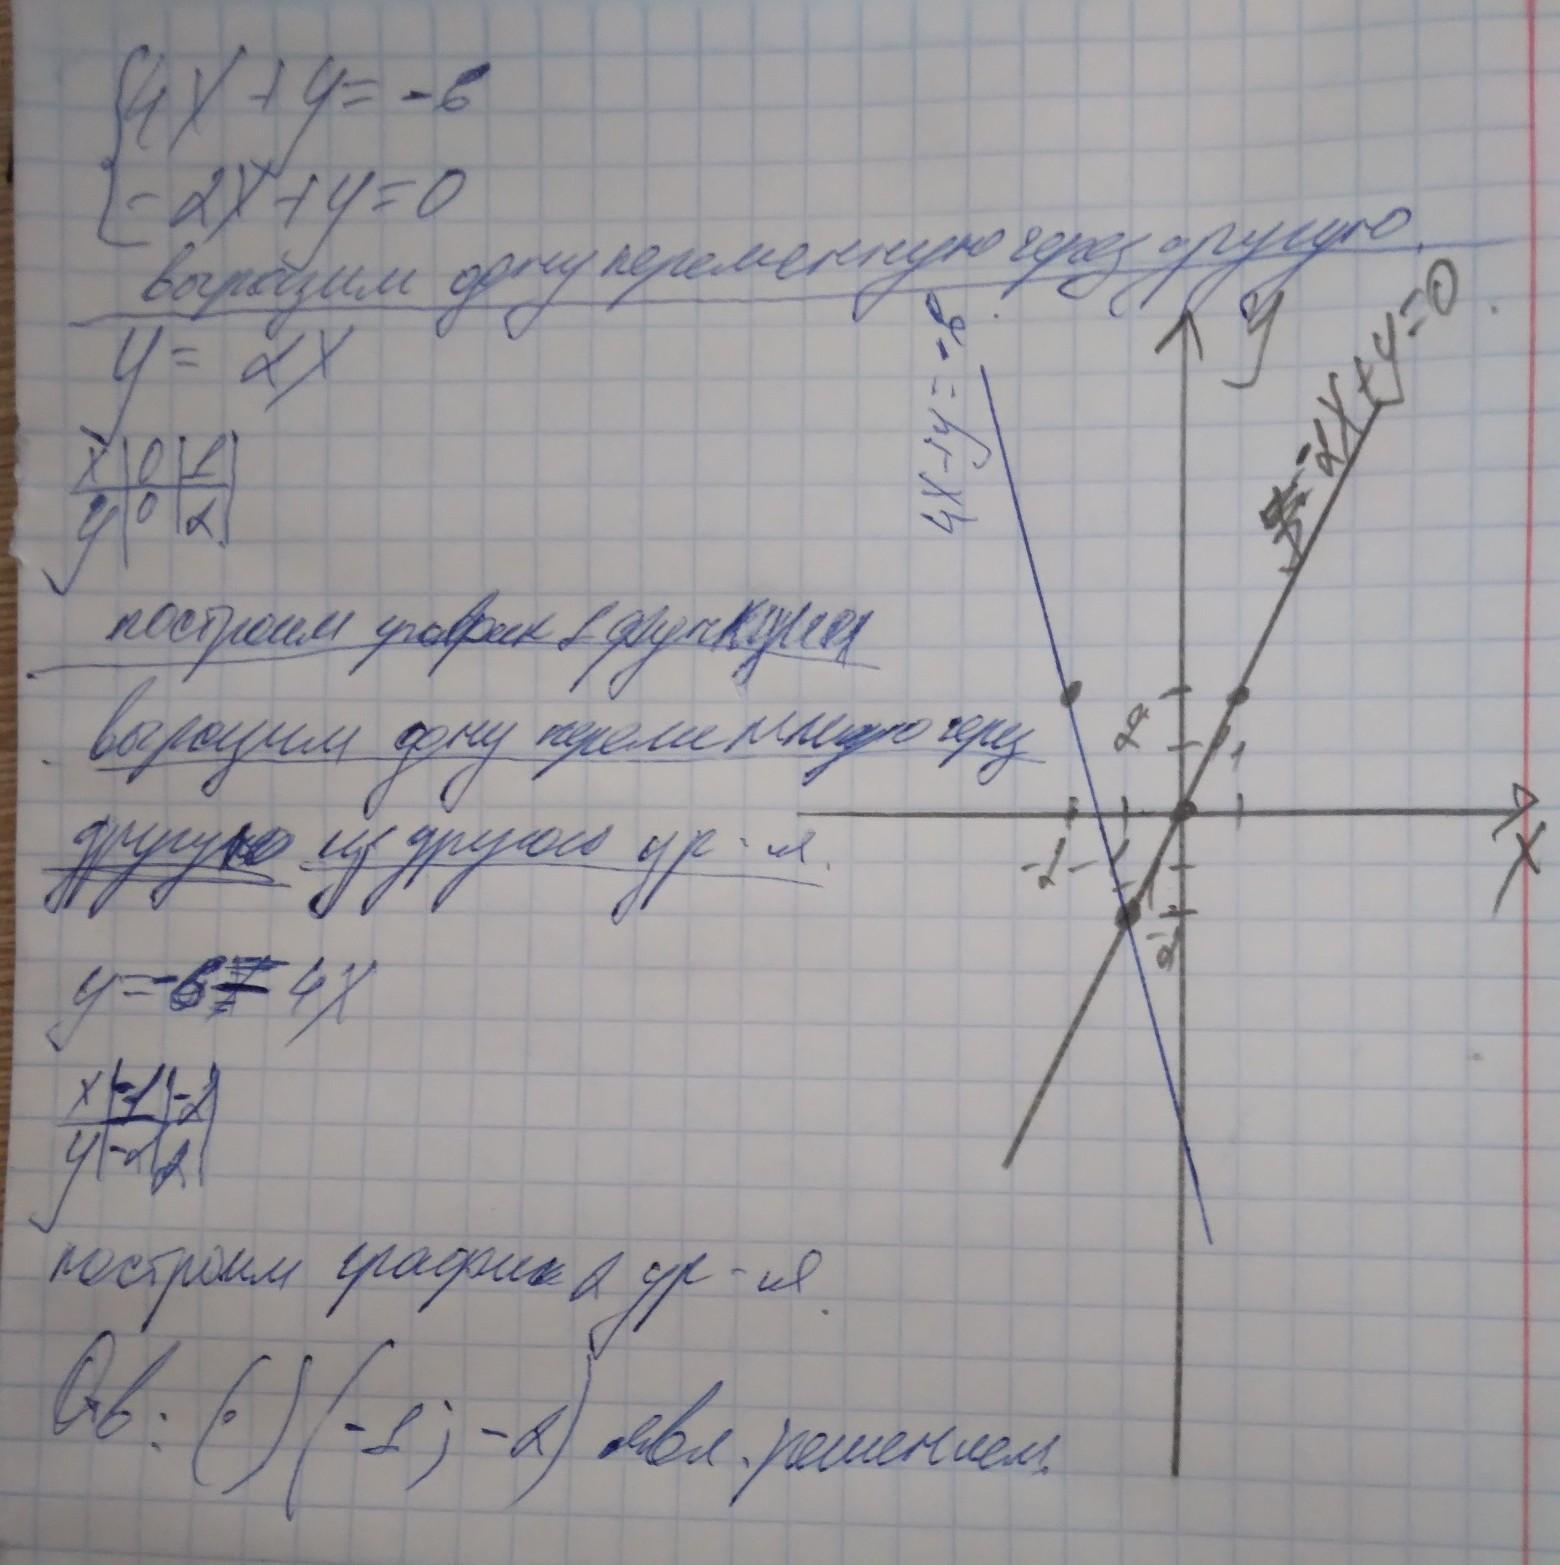 {4x + y = -6
{-2x + y = 0
выразим одну переменную через другую.
y = 2x
x | 0 | 1
y | 0 | 2
построим график 1 функции
выразим одну переменную через
другую из другого ур-я.
y = -6 - 4x
x | -1 | -2
y | -2 | 2
построим график 2 ур-я.
Отв: (·) (-1; -2) явл. решением.
4x + y = -6
y
-2x + y = 0
2
1
-2 -1
x
-1
-2